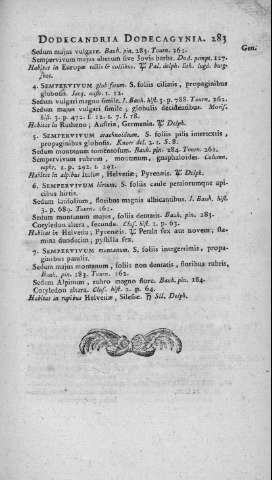 DODECANDRIA DODECAGYNIA. 283
Sedum majus vulgare. Bauh. pin. 283. Tourn. 262.
Gen.
Sempervivum majus alterum sive Jovis barba. Dod. pempt. 127.
Habitat in Europæ tectis & collibus. ♃ Pal. delph. lith. lugd. burg.
4. SEMPERVIVUM globiferum. S. foliis ciliatis, propaginibus
globosis. Jacq. 1. 12.
Sedum vulgari magno simile. J. Bauh. hist. 3. p. 788. Tourn. 262.
Sedum vulgari majori simile; globulis decidentibus. Moris.
hist. 3. p. 472. s. 12. t. 7. f. 18.
Habitat in Rutheno; Austria, Germania. ♃ Delph.
5. SEMPERVIVUM arachnoideum. S. foliis pilis intertextis,
propaginibus globosis. Knorr del. 2. t. S. 8.
Sedum montanum tomentosum. Bauh. pin. 284. Tourn. 262.
Sempervivum rubrum, montanum, gnaphaloides. Column.
ecphr. 1. p. 292. t. 291.
Habitat in alpibus Italiæ, Helvetiæ; Pyrenæis. ♃ Delph.
6. SEMPERVIVUM hirtum. S. foliis caule petalorumque api-
cibus hirtis.
Sedum latifolium, floribus magnis albicantibus. J. Bauh. hist.
3. p. 689. Tourn. 262.
Sedum montanum majus, foliis dentatis. Bauh. pin. 283.
Cotyledon altera, secunda. Clus. hist. 2. p. 63.
Habitat in Helvetia; Pyrenæis. ♃ Petala sex aut novem; sta-
mina duodecim; pystilla sex.
7. SEMPERVIVUM montanum. S. foliis integerrimis, propa-
ginibus patulis.
Sedum majus montanum, foliis non dentatis, floribus rubris.
Bauh. pin. 283. Tourn. 262.
Sedum Alpinum, rubro magno flore. Bauh. pin. 284.
Cotyledon altera. Clus. hist. 2. p. 64.
Habitat in rupibus Helvetiæ, Silesiæ. ♄ Sil. Delph.